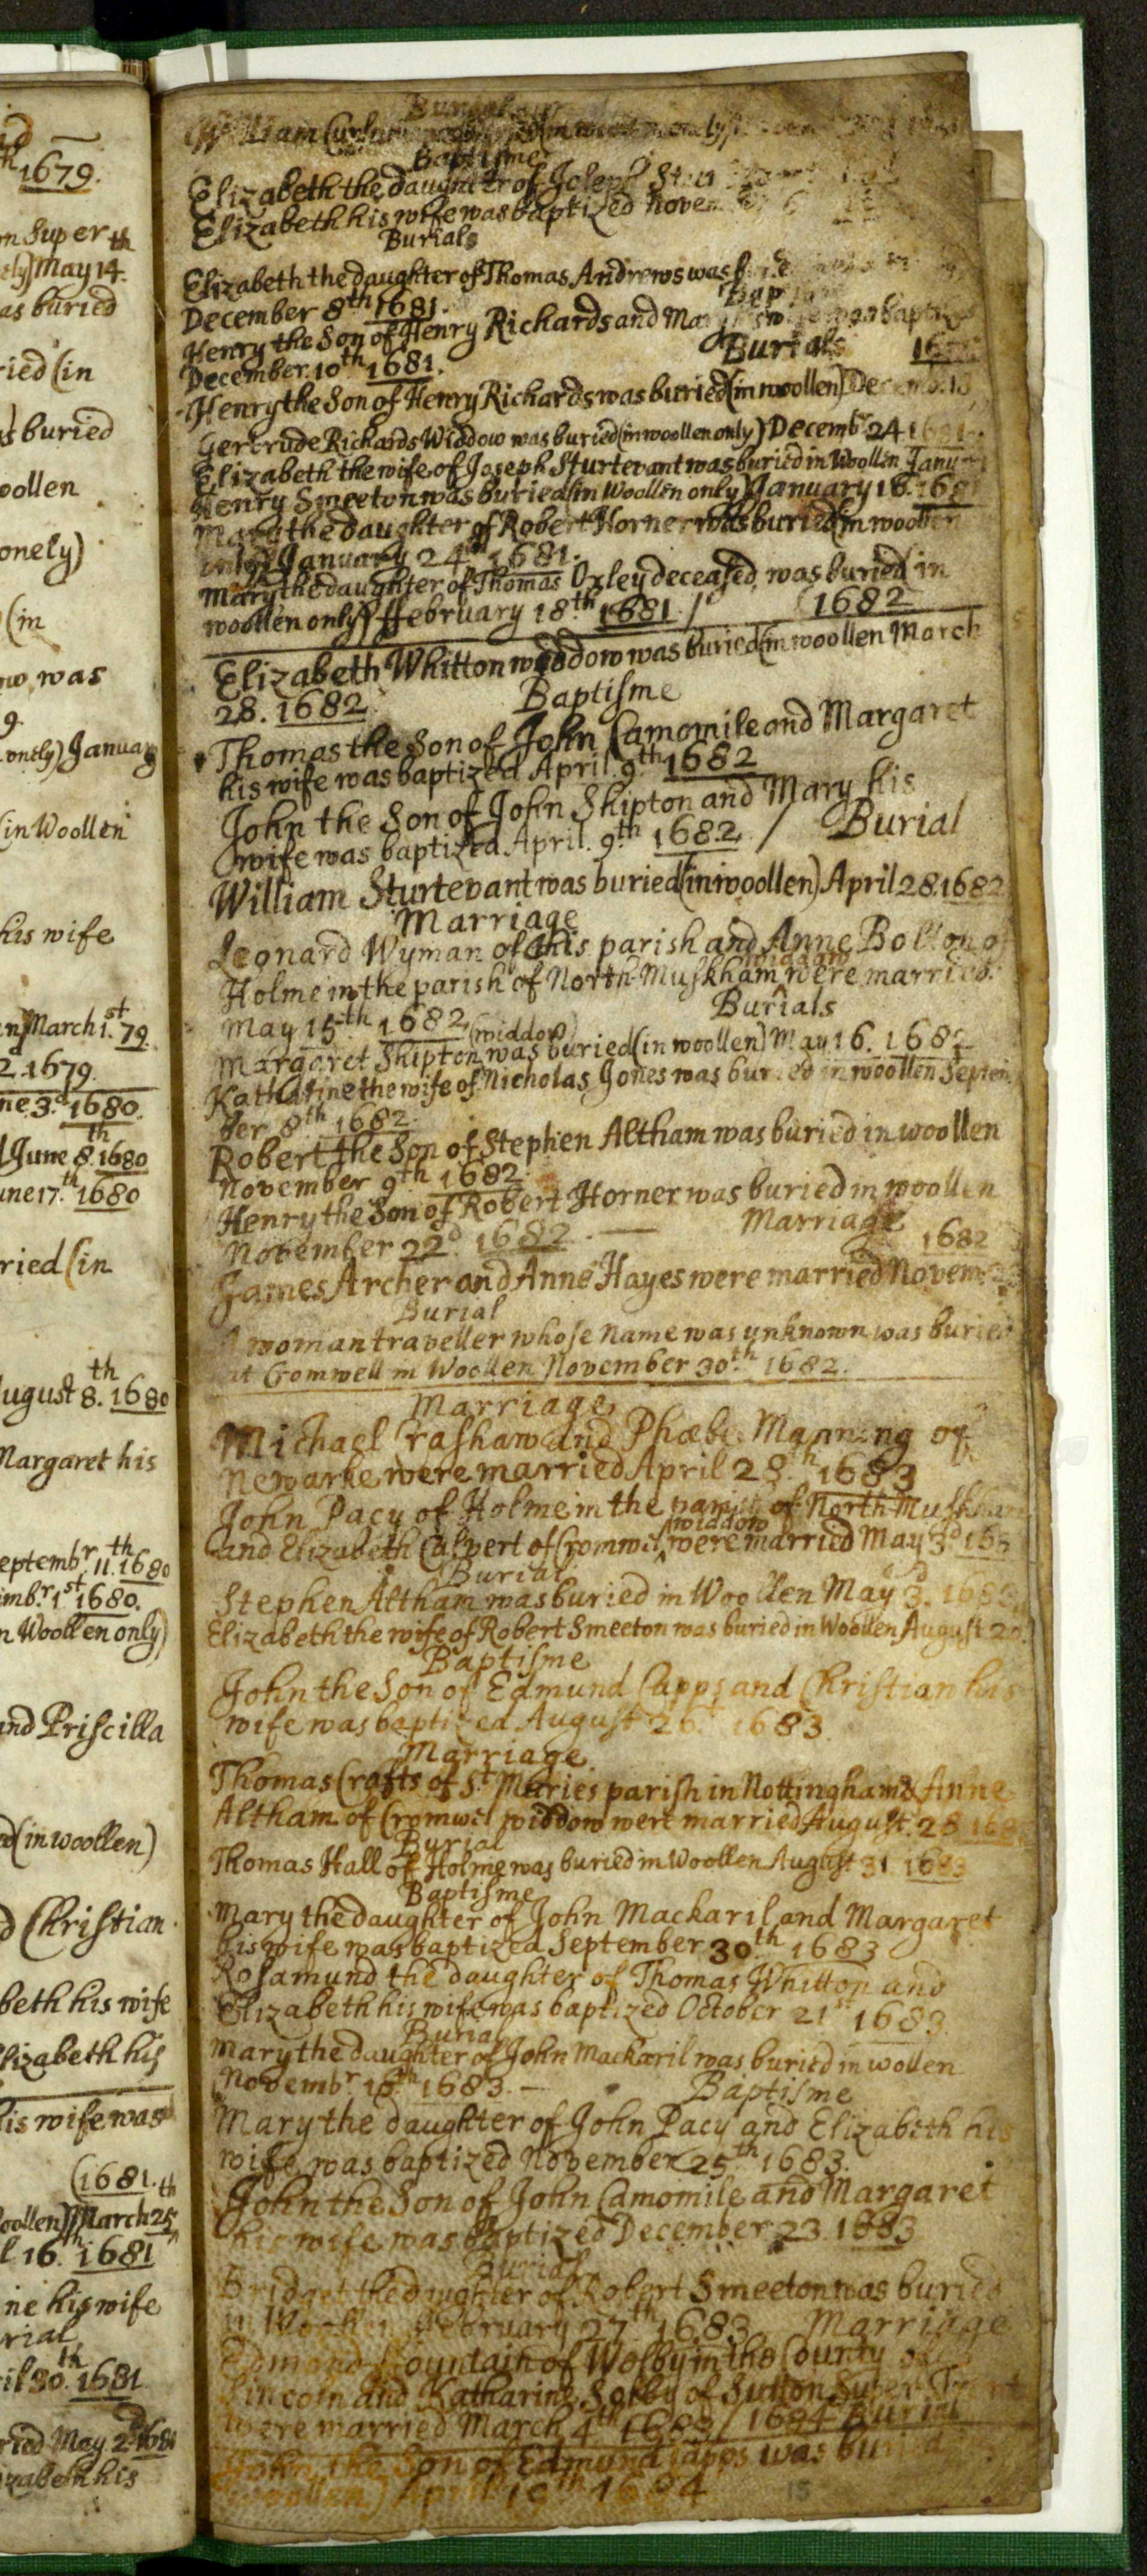 1679.
on Super
May 14
as buried
ried (in
s buried
oollen
onely)
(in
ow was
9
onely) January
(in Woollen
his wife
March 1st. 79
2. 1679.
ne 3d. 1680.
June 8th. 1680
une 17.th 1680
ried (in
ugust 8.th 1680
Margaret his
eptembr. 11.th 1680
mbr. 1st 1680.
n Woollen only)
and Priscilla
(in woollen)
Christian
beth his wife
lizabeth his
his wife was
(1681.
oollen) March 25th
l 16.th 1681
ne his wife
rial
il 30.th 1681
ried May 2d 1681
izabeth his
Burial
William
Baptisme
Elizabeth the daughter of Joseph
Elizabeth his wife was baptized
Burials
Elizabeth the daughter of Thomas Andrews was
December 8th 1681.
Henry the Son of Henry Richards and
December. 10th 1681.
Burials
Henry the Son of Henry Richards was buried (in woollen)
Gertrude Richards Widdow was buried (in woollen only) Decembr. 24
Elizabeth the wife of Joseph Sturtevant was buried in Woollen
Henry Smeeton was buried (in Woollen only) January 16. 1681
the daughter of Robert Horner was buried (in woollen
January 24th 1681.
Mary the daughter of Thomas Oxley deceased, was buried (in
woollen only) ffebruary 18.th 1681 / (1682
Elizabeth Whitton widdow was buried (in woollen March
28. 1682. Baptisme
Thomas the Son of John Camomile and Margaret
his wife was baptized April. 9th. 1682
John the Son of John Shipton and Mary his
wife was baptized April. 9.th 1682 / Burial
William Sturtevant was buried (in woollen) April 28. 1682
Marriage
Leonard Wyman of this parish and Anne Bolton of
Holme in the parish of North-Muskham widdow were married
May 15th 1682 Burials
Margaret Shipton (widdow) was buried (in woollen) May 16. 1682
Katharine the wife of Nicholas Jones was buried in woollen Septem
ber 8th 1682.
Robert the Son of Stephen Altham was buried in woollen
November 9th 1682
Henry the Son of Robert Horner was buried in woollen
November 22d. 1682. — Marriage
1682
James Archer and Anne Hayes were married Novem
Burial
A woman traveller whose name was unknown was buried
at Cromwell in Woollen November 30.th 1682.
Marriage
Michael Crashaw and Phœbe Manning of
Newarke were married April 28.th 1683
John Pacy of Holme in the parish of North Muskham
and Elizabeth Calvert of Cromwel widdow were married May 3d
Burial
Stephen Altham was buried in Woollen May 3d. 1683
Elizabeth the wife of Robert Smeeton was buried in Woollen August
Baptisme
John the Son of Edmund Capps and Christian his
wife was baptized August 26.th 1683.
Marriage
Thomas Crafts of St. Maries parish in Nottingham & Anne
Altham of Cromwel widdow were married August. 28
Burial
Thomas Hall of Holme was buried in Woollen August 31 1683
Baptisme
Mary the daughter of John Mackaril and Margaret
his wife was baptized September 30th 1683
Rosamund the daughter of Thomas Whitton and
Elizabeth his wife was baptized October 21st 1683.
Burial
Mary the daughter of John Mackaril was buried in wollen
Novembr. 1683. — Baptisme
Mary the daughter of John Pacy and Elizabeth his
wife was baptized November 25th 1683.
John the Son of John Camomile and Margaret
his wife was baptized December 23. 1683
Burial
Bridget the daughter of Robert Smeeton was buried
in Woollen ffebruary 27th 1683 Marriage
Edmond ffountain of Welby in the County of
Lincoln and Katharine Sorby of Sutton Super Trent
were married March 4th 1683 / 1684 Burial
John the Son of Edmund Capps was buried
woollen) April 1684
15